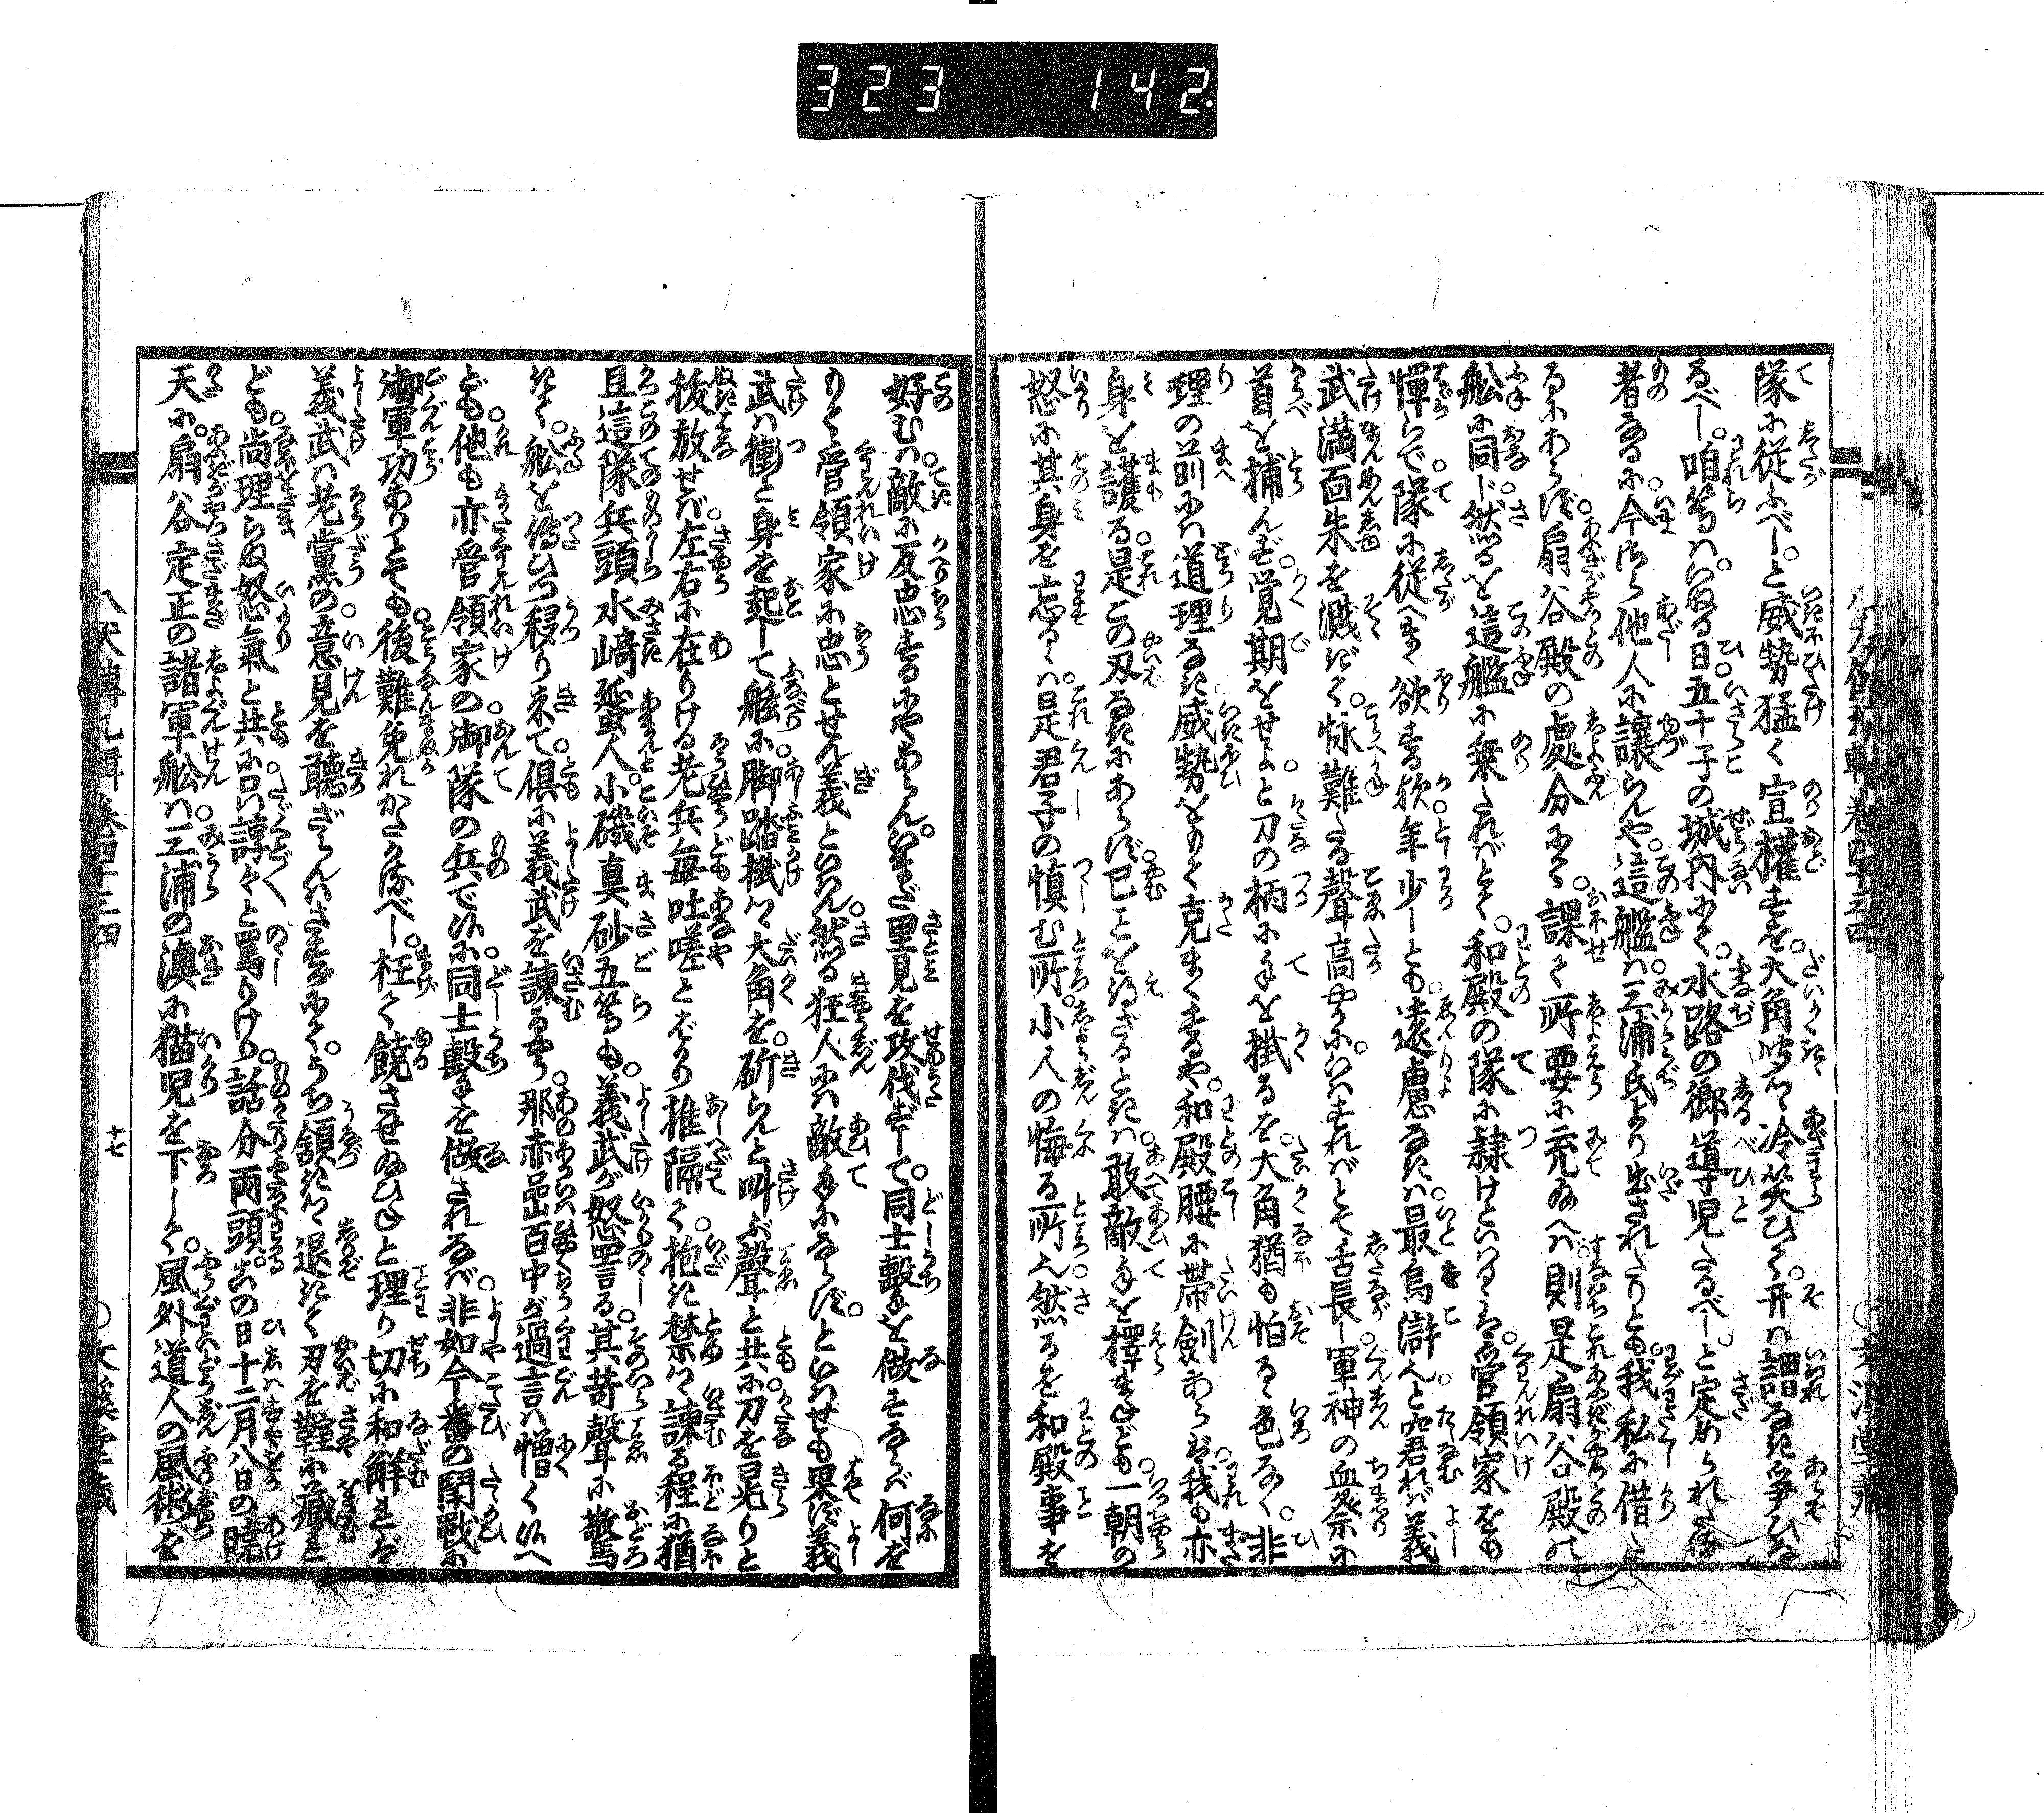 323 142.
隊に従ふべし。と威勢猛く宣權すを。大角听つゝ冷笑ひて。开は謂なき爭ひな
るべし。咱等は。ぬる日。五十子の城内にて。水路の郷導児たるべし。と定められたる
者なるに今さら他人に讓らんや。這艦は三浦氏より出されたりとも。我私に借た
るにあらず。扇谷殿の處分にて。課て所要に充給へば。則是扇谷殿の
舩に同じ。然るを這艦に乗たればとて。和殿の隊に隷けといはるゝは。管領家をも
憚らで。隊に従へまく欲する歟。年少しとも遠慮なきは。最烏滸也と窘れば義
武滿面朱を濺ぎて。怺難たる聲高やかに。いはすればとて舌長し軍神の血祭に
首を捕んず。覚期をせよ。と刀の柄に手を掛るを。大角猶も怕るゝ色なく。非
理の前には道理なき。威勢をもて克まくするや。和殿腰に帶劍あらば。我も亦
身を護る。是この刃なきにあらず。已ことを得ざるときは。敢敵手を擇まねども一朝の
怒に其身を忘るゝは。是君子の慎む所。小人の悔る所也。然るを和殿事を
好むは。敵に反忠するにやあらん。いまだ里見を攻伐ずして。同士撃を做すならば何を
もて管領家に忠とせん義といはん。然る狂人には敵手にならず。といはせも果ず義
武は衝と身を起して。艦に脚踏掛つゝ。大角を斫らんと叫ぶ聲と共に。刀を晃りと
拔放せば。左右に在りける老兵毎。吐嗟とばかり推隔て。抱き禁つゝ諫る程に。猶
且這隊兵頭。水﨑蜑人。小磯真砂五等も。義武が怒罵る。其苛聲に驚
きて。舩を傳ひつ移り來て。倶に義武を諫るやう。那赤嵓百中が過言は憎く候へ
ども。他も亦管領家の。御隊の兵で候に。同士撃を做されなば。非如今番の鬪戰に
御軍功ありとても。後難免れがたかるべし。枉て饒させ給ひねと理り切に和解しかば
義武は老黨の。意見を聽ざらんはさすがにて。うち頷きつゝ退きて刃を鞘に藏れ
ども。尚理らぬ怒氣と共に。口は諄々と罵りけり。話分兩頭。其の日十二月八日の曉
天に。扇谷定正の諸軍舩は。三浦の澳に猫児を下して。風外道人の風術を
八犬傳九輯卷四十三四
十七
○文溪堂藏